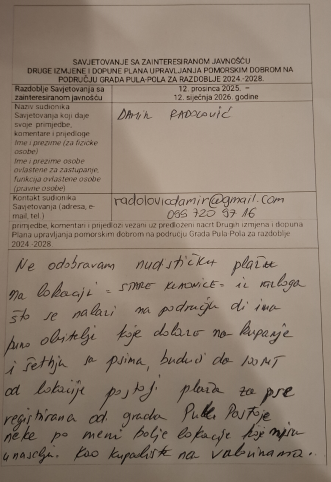 SAVJETOVANJE SA ZAINTERESIRANOM JAVNOŠĆU
DRUGE IZMJENE I DOPUNE PLANA UPRAVLJANJA POMORSKIM DOBROM NA
PODRUČJU GRADA PULA-POLA ZA RAZDOBLJE 2024.-2028.
Razdoblje Savjetovanja sa zainteresiranom javnošću
12. prosinca 2025. – 12. siječnja 2026. godine
Naziv sudionika
Savjetovanja koji daje
svoje primjedbe,
komentare i prijedloge
Ime i prezime (za fizičke
osobe)
Ime i prezime osobe
ovlaštene za zastupanje,
funkcija ovlaštene osobe
(pravne osobe)
DAMIR RADOLOVIĆ
Kontakt sudionika
Savjetovanja (adresa, e-
mail, tel.)
radolovicdamir@gmail.com
095 720 97 16
primjedbe, komentari i prijedlozi vezani uz predloženi nacrt Drugih izmjena i dopuna
Plana upravljanja pomorskim dobrom na području Grada Pula-Pola za razdoblje
2024.-2028.
Ne odobravam nudističku plažu
na lokaciji = STARE KUMOVICE = iz razloga
što se nalazi na području di ima
puno obitelji koje dolaze na kupanje
i šetnju sa psima, budući da 100MT
od lokacije postoji plaža za pse
registrirana od grada Pule. Postoje
neke po meni bolje lokacije koje nisu
u naselju. kao kupalište na valovinama.